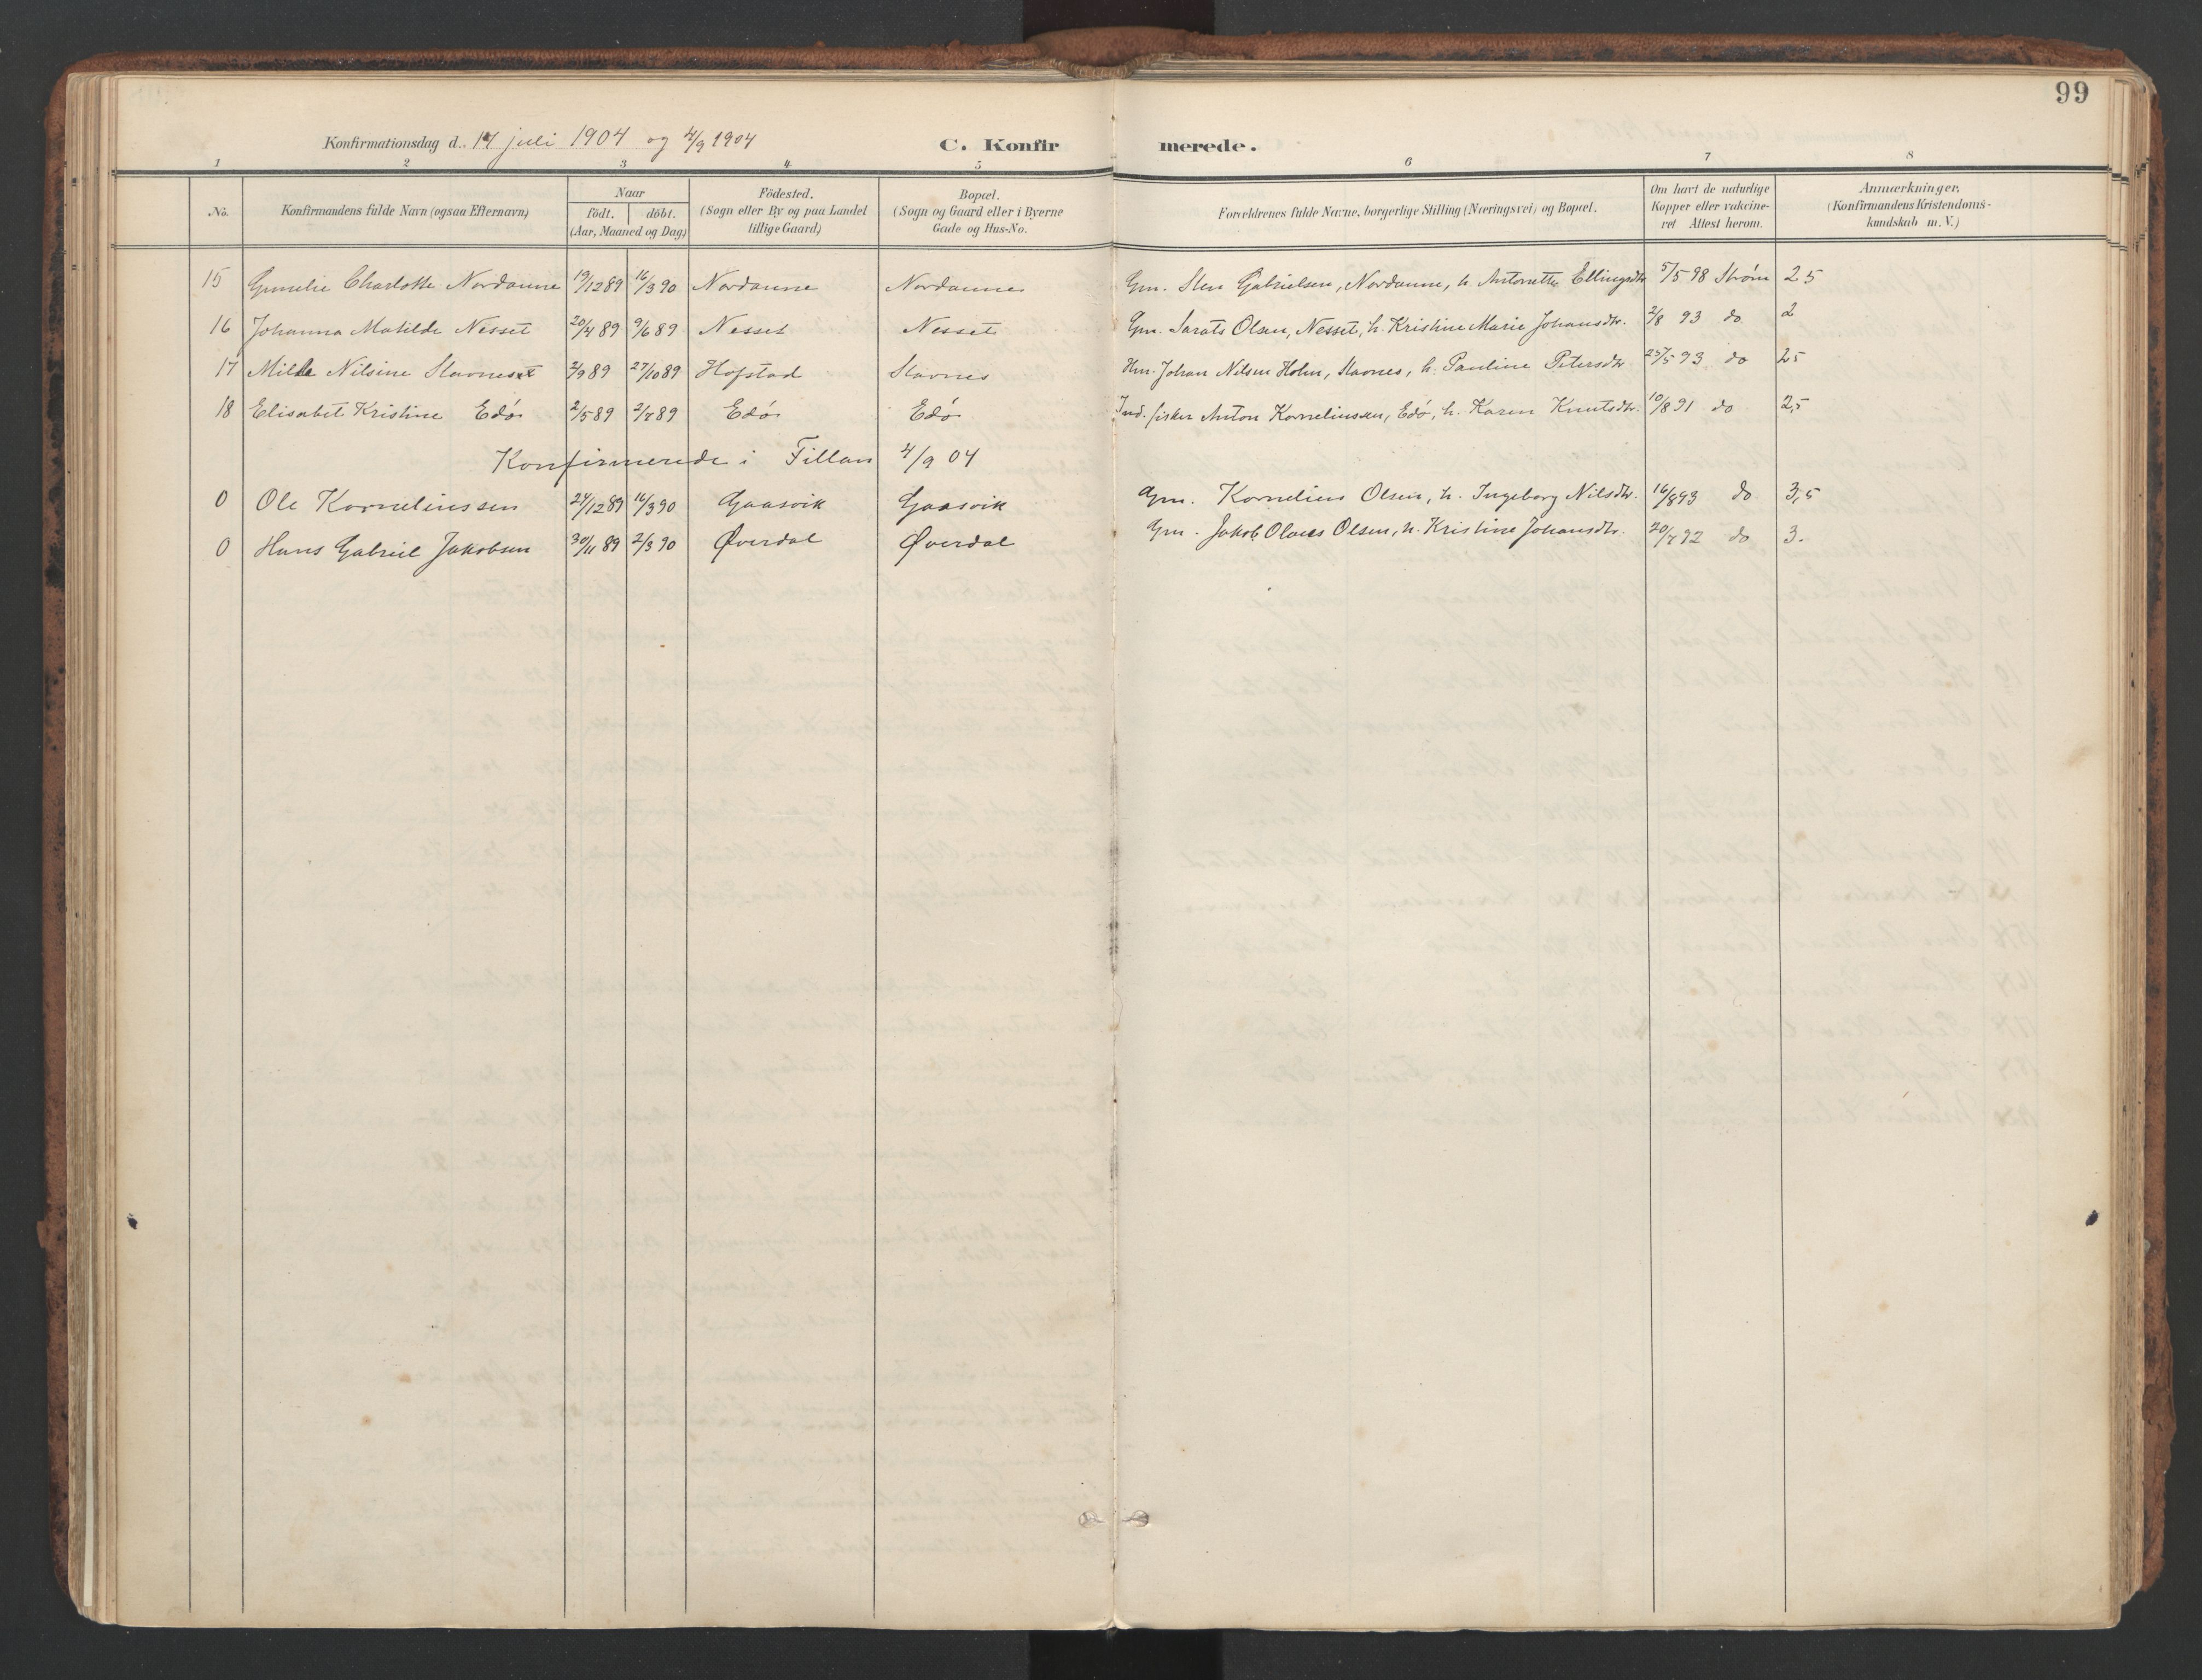 99
Konfirmationsdag d. 17 juli 1904 og 4/9 1904 C. Konfirmerede.
1 2 3 4 5 6 7 8
No. Konfirmandens fulde Navn (ogsaa Efternavn) Naar födt. döbt. (Aar, Maaned og Dag) Födested. (Sogn eller By og paa Landet tillige Gaard) Bopæl. (Sogn og Gaard eller i Byerne Gade og Hus-No. Forældrenes fulde Navne, borgerlige Stilling (Næringsvei) og Bopæl. Om havt de naturlige Kopper eller vakcineret Attest herom. Anmærkninger. (Konfirmandens Kristendomskundskab m. V.)
15 Charlotte Nordanne 19/12 89 16/3 90 Nordanne Nordannes Gm. Sten Gabrielsen, Nordanne, h. Antonette Ellingsdtr 5/5 98 Strøm 25
16 Johanna Matilde Nesset 20/4 89 9/6 89 Nesset Nesset Gm. Olsen, Nesset, h. Kristine Marie Johansdtr. 2/8 93 do 2
17 Milde Nilsine Stavneset 2/9 89 27/10 89 Hofstad Stavnes Hm. Johan Nilsen Holm, Stavnes, h. Pauline Petersdtr 25/5 93 do 25
18 Elisabet Kristine Edö 2/5 89 2/7 89 Edö Edö Ind. fisker Anton Korneliussen, Edö, h. Karen Knutsdtr. 10/8 91 do 2,5
Konfirmerede i Fillan 4/9 04
0 Ole Korneliussen 24/12 89 16/3 90 Gaasvik Gaasvik Gm. Kornelius Olsen, h. Ingeborg Nilsdtr. 16/8 93 do 3,5
0 Hans Gabriel Jakobsen 30/11 89 2/3 90 Øverdal Øverdal Gm. Jakob Olaus Olsen, h. Kristine Johansdtr. 20/7 92 do 3.